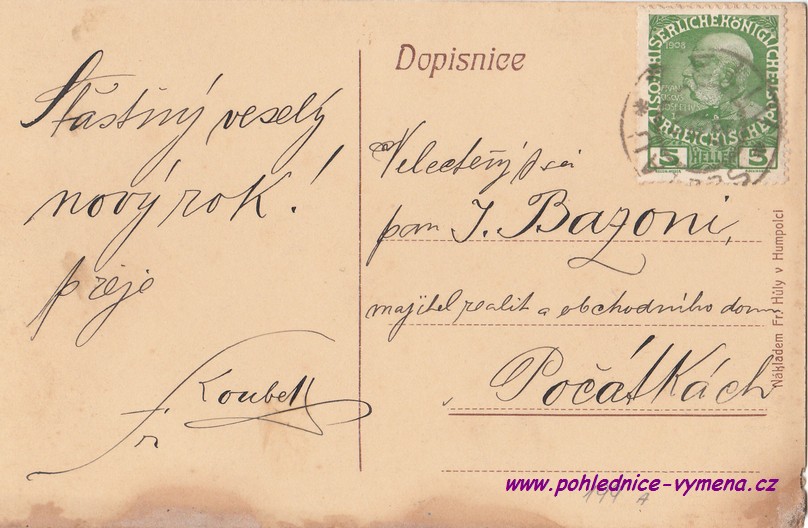 Šťastný veselý
nový rok!
přeje
Fr Koubek
Dopisnice
Velectěný pan
pan J. Bazoni,
majitel realit a obchodního domu
Počátkách
Nákladem Fr. Hůly v Humpolci
1908
5 HELLER 5
www.pohlednice-vymena.cz
194 A